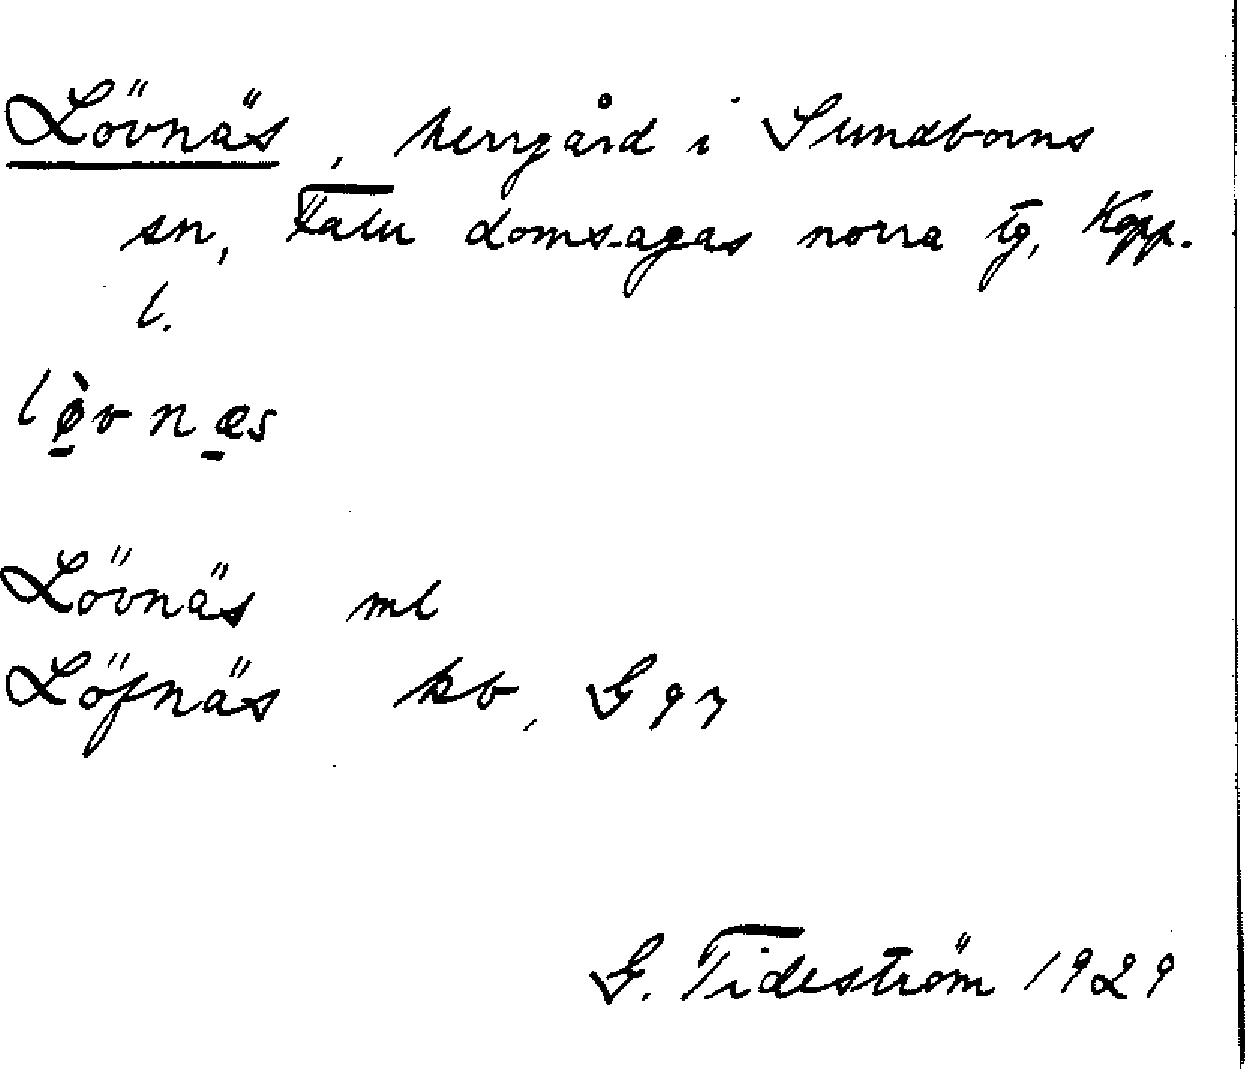 Lövnäs, herrgård i Sundborns
sn, Falu domsagas norra tg, Kopp.
l.
lø̱̀vnæ̱s
Lövnäs ml
Löfnäs kb, G 97
G. Tideström 1929